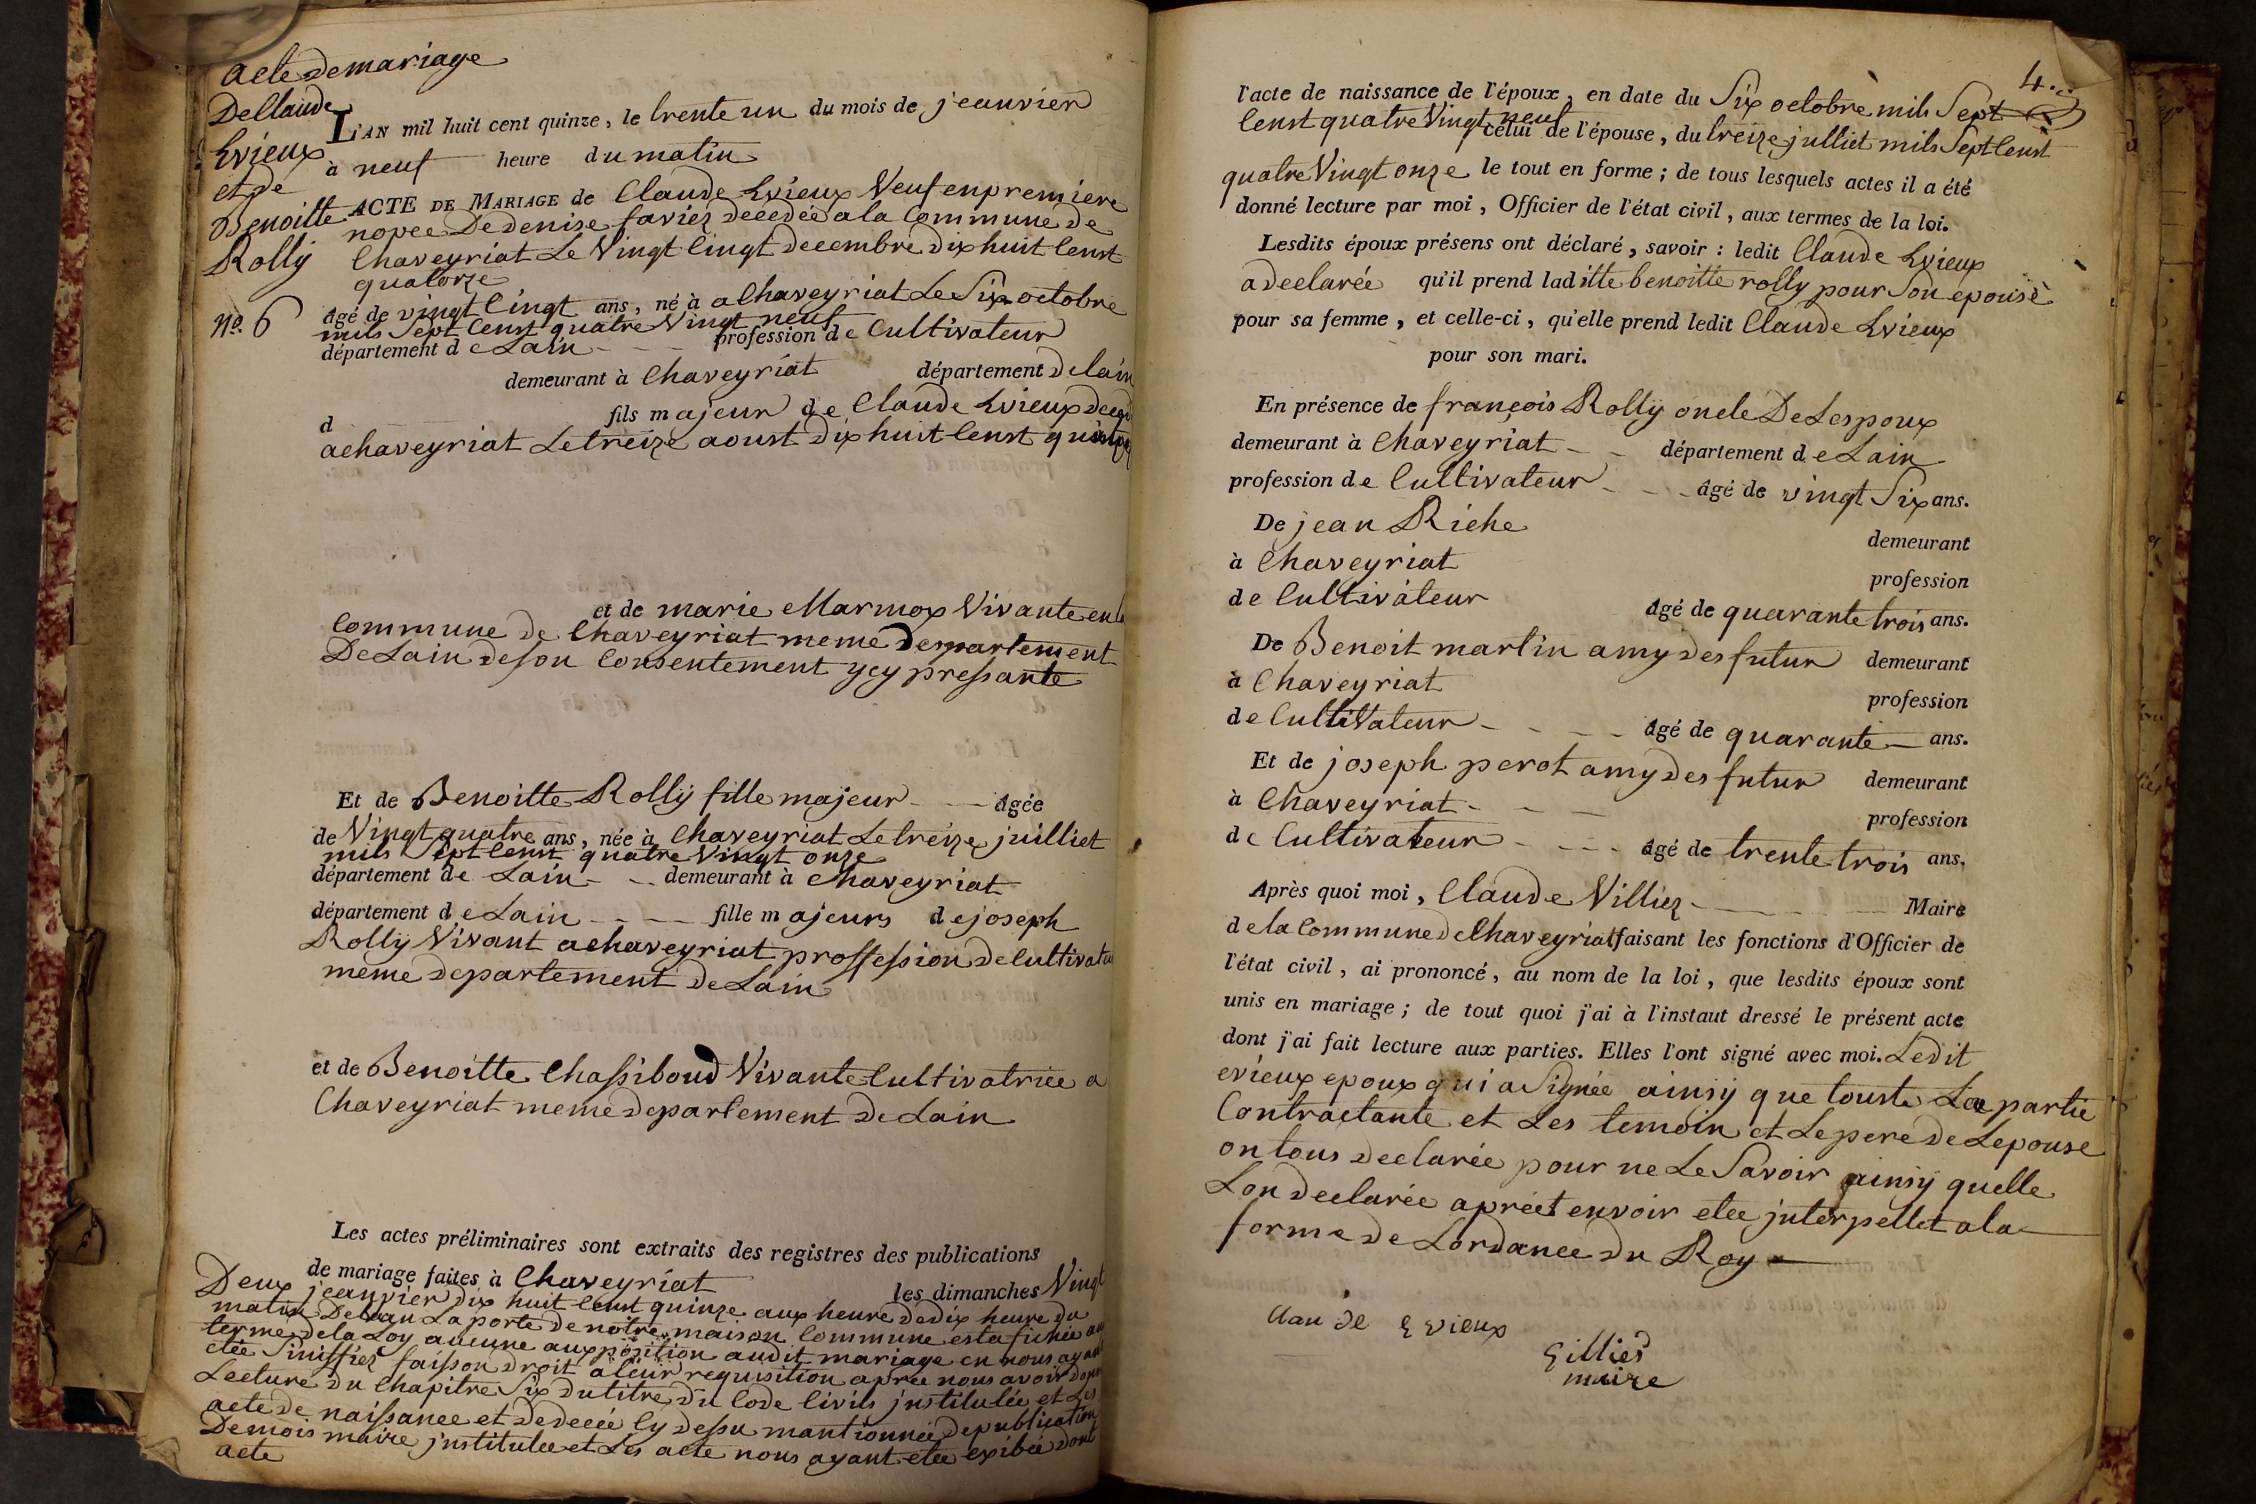 acte de mariage
De Claude
Evieux
et de
Benoitte
Rolly
No. 6
L'AN mil huit cent quinze, le trente un du mois de jeanvier
à neuf heure du matin
ACTE DE MARIAGE de Claude Evieux Veuf en premiere
nopce De denise favier decedée a la Commune de
Chaveyriat Le Vingt Cingt decembre dix huit Censt
quatorze
âgé de vingt Cingt ans, né à a Chaveyriat Le Six octobre
mils Sept Censt quatre Vingt neuf
département de Lain profession de Cultivateur
demeurant à Chaveyriat département de lain
d fils majeur de Claude Evieux
a chaveyriat Le treize aoust dix huit Censt
et de marie Marmox Vivante en
Commune de Chaveyriat meme Departement
De Lain de son Consentement ycy pressante
Et de Benoitte Rolly fille majeur âgée
de Vingt quatre ans, née à Chaveyriat Le treize juilliet
mils Sept Censt quatre Vingt onze
département de Lain demeurant à Chaveyriat
département de Lain fille majeurs de joseph
Rolly Vivant a chaveyriat proffession de Cultivateu
meme departement de Lain
et de Benoitte Chassiboud Vivante Cultivatrice a
Chaveyriat meme departement de Lain
Les actes préliminaires sont extraits des registres des publications
de mariage faites à Chaveyriat les dimanches Vingt
Deux jeanvier dix huit Censt quinze aux heure de dix heure du
matin Devan La porte de notre maison Commune est afichée au
terme de la Loy aucune auxposition audit mariage en nous ayant
etée Siniffiez faisson droit a leur requisition aprée nous avoir donn
Lecture du Chapitre Six du titre du Code Civils justitulée et Les
acte de naissance et de decée Cy dessu mantionnée de publication
De mois maire justitulee et Les acte nous ayant etee exibée dont
acte
4.
l'acte de naissance de l'époux, en date du Six octobre mils Sept
Censt quatre Vingt neuf
celui de l'épouse, du treize julliet mils Sept Censt
quatre Vingt onze le tout en forme; de tous lesquels actes il a été
donné lecture par moi, Officier de l'état civil, aux termes de la loi.
Lesdits époux présens ont déclaré, savoir: ledit Claude Evieux
a declarée qu'il prend laditte benoitte rolly pour Son epouse
pour sa femme, et celle-ci, qu'elle prend ledit Claude Evieux
pour son mari.
En présence de françois Rolly oncle De Lespoux
demeurant à Chaveyriat département de Lain
profession de Cultivateur âgé de vingt Six ans.
De jean Riche demeurant
à Chaveyriat profession
de Cultivateur âgé de quarante trois ans.
De Benoit martin amy des futur demeurant
à Chaveyriat profession
de Cultivateur âgé de quarante ans.
Et de joseph perot amy des futur demeurant
à Chaveyriat profession
de Cultivateur âgé de trente trois ans.
Après quoi moi, Claude Villiez Maire
de la Commune de Chaveyriat faisant les fonctions d'Officier de
l'état civil, ai prononcé, au nom de la loi, que lesdits époux sont
unis en mariage; de tout quoi j'ai à l'instaut dressé le présent acte
dont j'ai fait lecture aux parties. Elles l'ont signé avec moi. Ledit
evieux epoux qui a Signée ainsy que touste La partie
Contractante et Les temoin et Le pere de Lepouse
on tous declarée pour ne Le Savoir ainsy quelle
Lon declarée apréet envoir etee julerpellet a la
forme de Lordance du Roy
Claude Evieux
Villier
maire